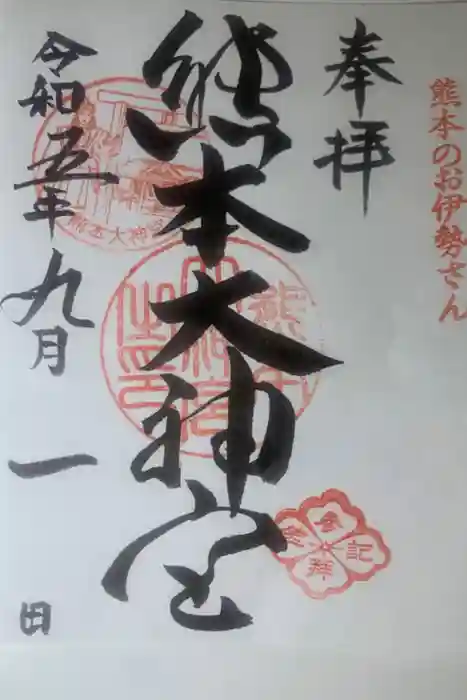 熊本のお伊勢さん
奉拝
熊本大神宮
令和五年九月一日
熊本大神宮
参拝記念